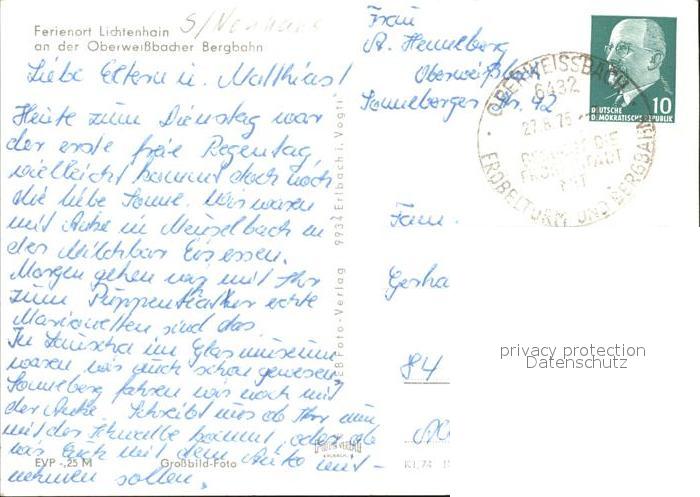 Ferienort Lichtenhain
an der Oberweißbacher Bergbahn
Liebe Eltern u. Matthias!
Heute zum Dienstag war
der erste freie Regentag,
vielleicht kommt doch noch
die liebe Sonne. Wir waren
mit Anke in Meuselbach in
der Milchbar Eis essen.
Morgen gehen wir mit Ihr
zum Puppentheater echte
Marionetten sind das.
In Lauscha im Glasmuseum
waren wir auch schon gewesen,
Sonneberg fahren wir noch mit
der Anke. Schreibt uns ob Ihr nun
mit der Schwalbe kommt, oder ob
wir Euch mit dem Auto mit-
nehmen sollen.
EVP -,25 M
Großbild-Foto
EB Foto-Verlag 9934 Erlbach i. Vogtl.
Frau
A. Hennelberg
Oberweißbach
Sonneberger Str. 42
OBERWEISSBACH
6432
27.8.75
FRÖBELTURM UND BERGBAHN
10
DEUTSCHE
DEMOKRATISCHE REPUBLIK
Fam.
Gerha
84
privacy protection
Datenschutz